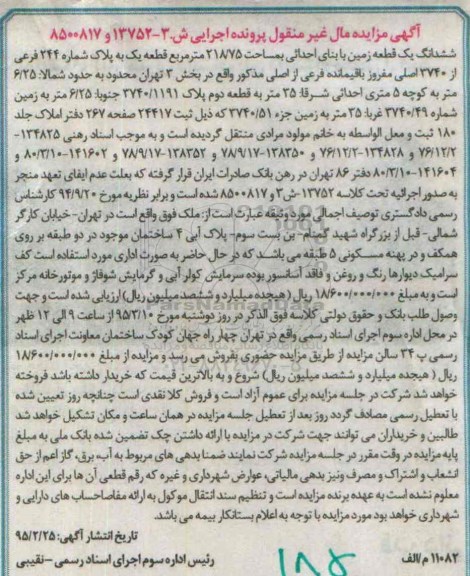 آگهی مزایده مال غیر منقول پرونده اجرایی ش.۳-۱۳۷۵۲ و ۸۵۰۰۸۱۷
ششدانگ یک قطعه زمین با بنای احداثی بمساحت ۲۱۸/۷۵ مترمربع قطعه یک به پلاک شماره ۲۴۴ فرعی
از ۳۷۴۰ اصلی مفروز باقیمانده فرعی از اصلی مذکور واقع در بخش ۳ تهران محدود به حدود شمالا: ۶/۲۵
متر به کوچه ۵ متری احداثی شرقا: ۳۵ متر به قطعه دوم پلاک ۳۷۴۰/۱۱۹۱ جنوبا: ۶/۲۵ متر به زمین
شماره ۳۷۴۰/۴۹ غربا: ۳۵ متر به زمین جزء ۳۷۴۰/۵۱ که ذیل ثبت ۲۴۴۱۷ صفحه ۲۶۷ دفتر املاک جلد
۱۸۰ ثبت و مع‌ل الواسطه به خانم مولود مرادی منتقل گردیده است و به موجب اسناد رهنی ۱۳۴۸۲۵-
۷۶/۱۲/۲ و ۱۳۴۸۲۸-۷۶/۱۲/۲ و ۱۳۸۳۵۰-۷۸/۹/۱۷ و ۱۳۸۳۵۲-۷۸/۹/۱۷ و ۱۴۱۶۰۲-۸۰/۳/۱۰ و
۱۴۱۶۰۴-۸۰/۳/۱۰ دفتر ۸۶ تهران در رهن بانک صادرات ایران قرار گرفته که بعلت عدم ایفای تعهد منجر
به صدور اجرائیه تحت کلاسه ۱۳۷۵۲-ش۳ و ۸۵۰۰۸۱۷ شده است و برابر نظریه مورخ ۹۴/۹/۲۰ کارشناس
رسمی دادگستری توصیف اجمالی مورد وثیقه عبارت است از: ملک فوق واقع است در تهران-خیابان کارگر
شمالی- قبل از بزرگراه شهید گمنام-بن بست سوم-پلاک آبی ۴ ساختمان موجود در دو طبقه بر روی
همکف و در پهنه مسکونی ۵ طبقه می باشد که در حال حاضر به صورت اداری مورد استفاده است کف
سرامیک دیوارها رنگ و روغن و فاقد آسانسور بوده سرمایش کولر آبی و گرمایش شوفاژ و موتورخانه مرکز
است و به مبلغ ۱۸/۶۰۰/۰۰۰/۰۰۰ ریال (هیجده میلیارد و ششصد میلیون ریال) ارزیابی شده است و جهت
وصول طلب بانک و حقوق دولتی کلاسه فوق الذکر در روز دوشنبه مورخ ۹۵/۳/۱۰ از ساعت ۹ الی ۱۲ ظهر
در محل اداره سوم اجرای اسناد رسمی واقع در تهران چهار راه جهان کودک ساختمان معاونت اجرای اسناد
رسمی پ ۳۴ سالن مزایده از طریق مزایده حضوری بفروش می رسد و مزایده از مبلغ ۱۸/۶۰۰/۰۰۰/۰۰۰
ریال ( هیجده میلیارد و ششصد میلیون ریال) شروع و به بالاترین قیمت که خریدار داشته باشد فروخته
خواهد شد شرکت در جلسه مزایده برای عموم آزاد است و فروش کلا نقدی است چنانچه روز تعیین شده
با تعطیل رسمی مصادف گردد روز بعد از تعطیل جلسه مزایده در همان ساعت و مکان تشکیل خواهد شد
طالبین و خریداران می توانند جهت شرکت در مزایده با ارائه داشتن چک تضمین شده بانک ملی به مبلغ
پایه مزایده در وقت مقرر در جلسه مزایده شرکت نمایند ضمنا بدهی های مربوط به آب، برق، گاز اعم از حق
انشعاب و اشتراک و مصرف ونیز بدهی مالیاتی، عوارض شهرداری و غیره که رقم قطعی آن ها برای این اداره
معلوم نشده است به عهده برنده مزایده است و تنظیم سند انتقال موکول به ارائه مفاصاحساب های دارایی و
شهرداری خواهد بود مورد مزایده با توجه به اعلام بستانکار بیمه می باشد.
تاریخ انتشار آگهی: ۹۵/۲/۲۵
رئیس اداره سوم اجرای اسناد رسمی -نقیبی
۱۱۰۸۲ م/الف